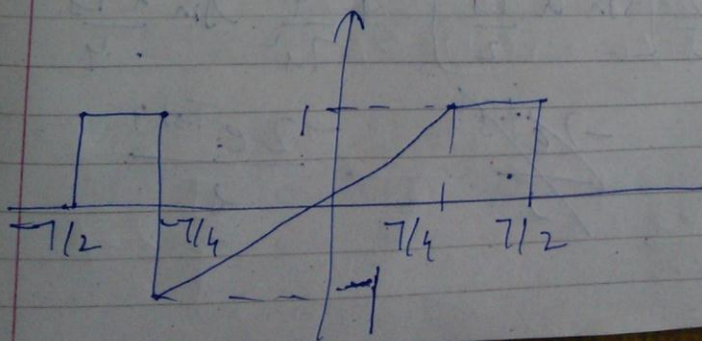 1
-T/2 -T/4 T/4 T/2
-1